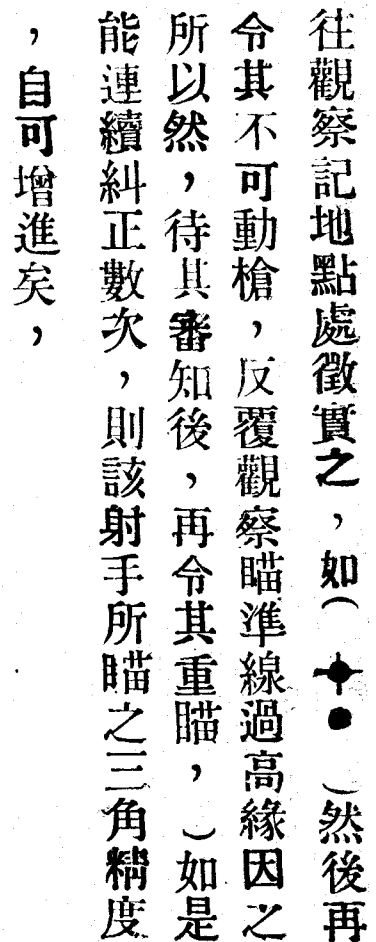 往觀察記地點處徵實之，如（⌖●）然後再
令其不可動槍，反覆觀察瞄準線過高緣因之
所以然，待其審知後，再令其重瞄，）如是
能連續糾正數次，則該射手所瞄之三角精度
，自可增進矣，